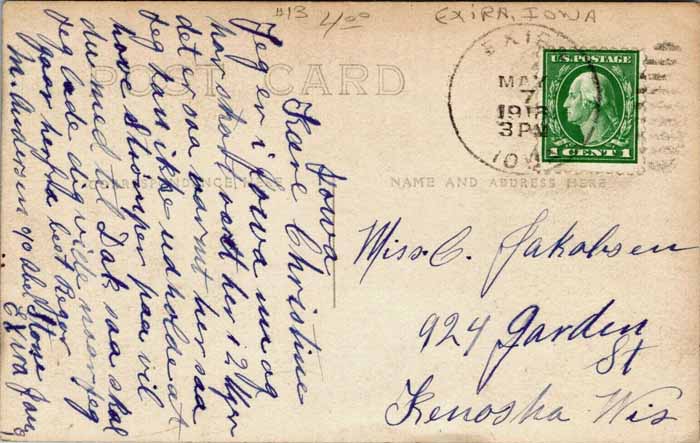 U.S. POSTAGE
1 CENT 1
EXIRA
MAY
7
3 PM
IOWA
EXIRA, IOWA
#13 4/00
POST CARD
NAME AND ADDRESS HERE
Miss C. Jakobsen
924 Garden
St
Kenosha Wis
Iowa
Kære Christine
Jeg er i Iowa nu og
har skort vært her i 2 Uger
det er saa varmt her saa
jeg kan ikke udholde at
have Strømper paa vil
du med til Dak saa skal
jeg lade dig vide naar jeg
gaar herfra
M. Andersen c/o Abel Stone
Exira Iowa